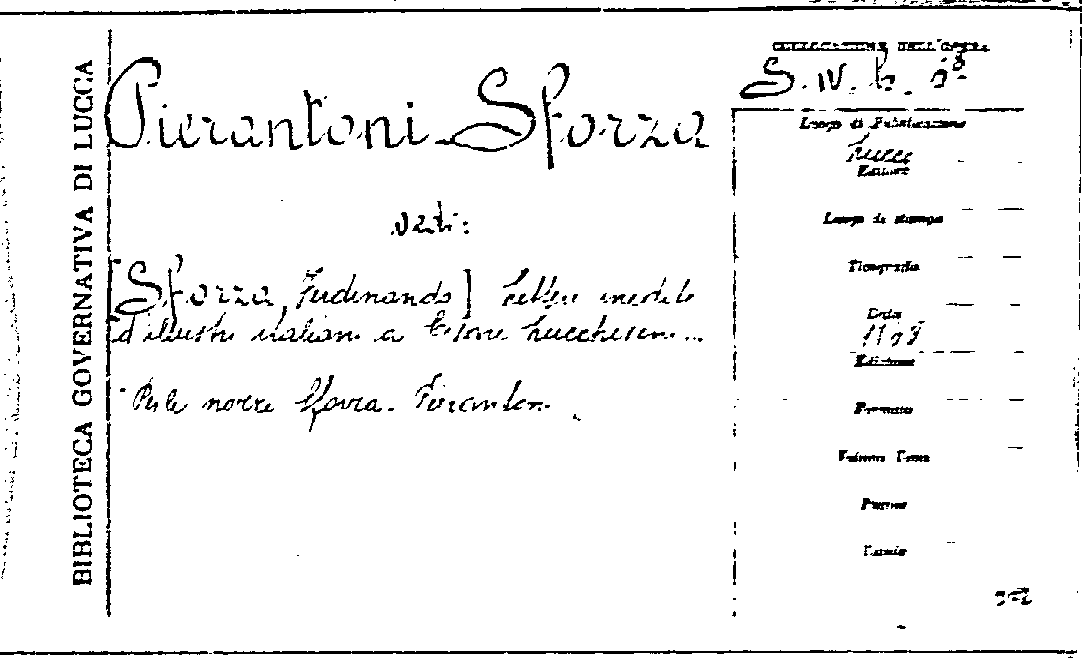 BIBLIOTECA GOVERNATIVA DI LUCCA
COLLOCAZIONE DELL'OPERA
Pierantoni-Sforza
vedi:
[Sforza, Ferdinando] Lettere inedite
d'illustri italiani a Cesare Lucchesini...
Per le nozze Sforza-Pierantoni.
Luogo di Pubblicazione
Lucca
Editore
Luogo di stampa
Tipografia
Data
Edizione
Formato
Volumi
Pagine
Tavole